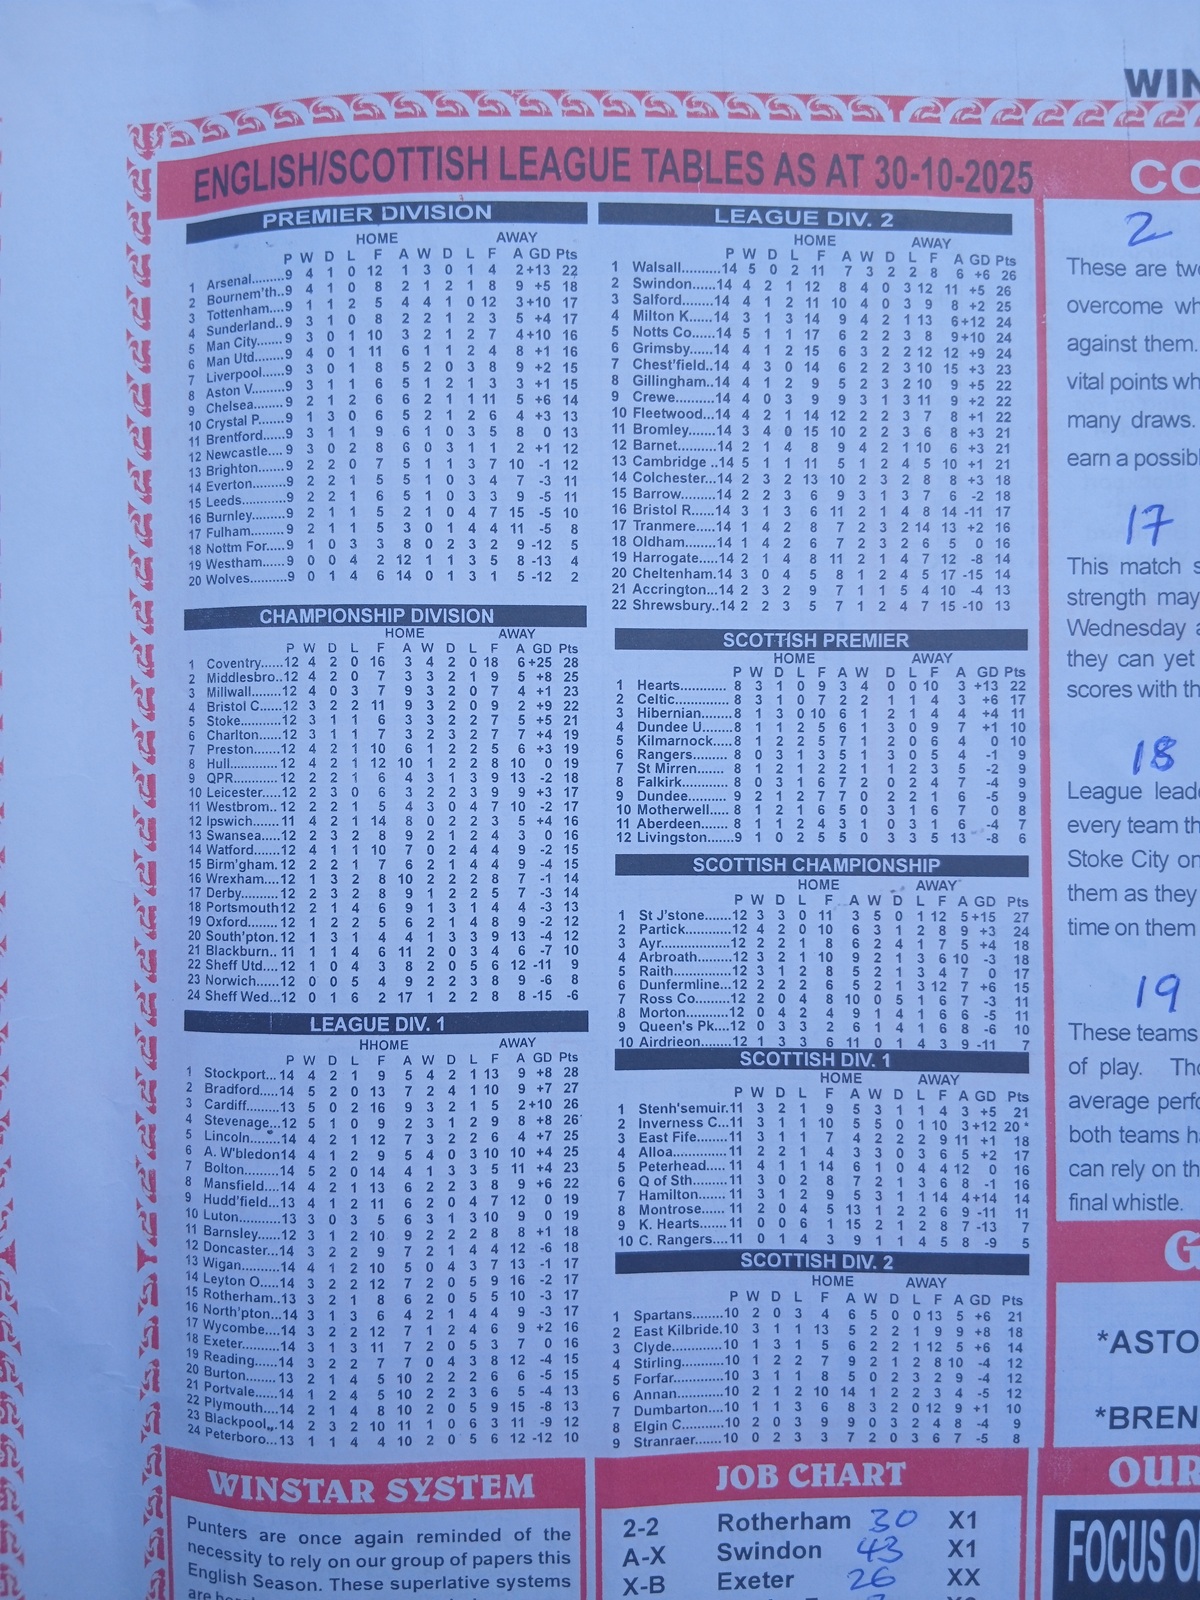 WIN
ENGLISH/SCOTTISH LEAGUE TABLES AS AT 30-10-2025
PREMIER DIVISION
HOME AWAY
P W D L F A W D L F A GD Pts
1 Arsenal........9 4 1 0 12 1 3 0 1 4 2 +13 22
2 Bournem'th..9 4 1 0 8 2 1 2 1 8 9 +5 18
3 Tottenham....9 1 1 2 5 4 4 1 0 12 3 +10 17
4 Sunderland..9 3 1 0 8 2 2 1 2 3 5 +4 17
5 Man City.......9 3 0 1 10 3 2 1 2 7 4 +10 16
6 Man Utd.......9 4 0 1 11 6 1 1 2 4 8 +1 16
7 Liverpool......9 3 0 1 8 5 2 0 3 8 9 +2 15
8 Aston V........9 3 1 1 6 5 1 2 1 3 3 +1 15
9 Chelsea........9 2 1 2 6 6 2 1 1 11 5 +6 14
10 Crystal P.....9 1 3 0 6 5 2 1 2 6 4 +3 13
11 Brentford.....9 3 1 1 9 6 1 0 3 5 8 0 13
12 Newcastle....9 3 0 2 8 6 0 3 1 1 2 +1 12
13 Brighton.......9 2 2 0 7 5 1 1 3 7 10 -1 12
14 Everton........9 2 2 1 5 5 1 0 3 4 7 -3 11
15 Leeds..........9 2 2 1 6 5 1 0 3 3 9 -5 11
16 Burnley........9 2 1 1 5 2 1 0 4 7 15 -5 10
17 Fulham.........9 2 1 1 5 3 0 1 4 4 11 -5 8
18 Nottm For....9 1 0 3 3 8 0 2 3 2 9 -12 5
19 Westham......9 0 0 4 2 12 1 1 3 5 8 -13 4
20 Wolves.........9 0 1 4 6 14 0 1 3 1 5 -12 2
CHAMPIONSHIP DIVISION
HOME AWAY
P W D L F A W D L F A GD Pts
1 Coventry......12 4 2 0 16 3 4 2 0 18 6 +25 28
2 Middlesbro..12 4 2 0 7 3 3 2 1 9 5 +8 25
3 Millwall........12 4 0 3 7 9 3 2 0 7 4 +1 23
4 Bristol C......12 3 2 2 11 9 3 2 0 9 2 +9 22
5 Stoke...........12 3 1 1 6 3 3 2 2 7 5 +5 21
6 Charlton......12 3 1 1 7 3 2 3 2 7 7 +4 19
7 Preston.......12 4 2 1 10 6 1 2 2 5 6 +3 19
8 Hull.............12 4 2 1 12 10 1 2 2 8 10 0 19
9 QPR............12 2 2 1 6 4 3 1 3 9 13 -2 18
10 Leicester....12 2 3 0 6 3 2 2 3 9 9 +3 17
11 Westbrom..12 2 2 1 5 4 3 0 4 7 10 -2 17
12 Ipswich......11 4 2 1 14 8 0 2 2 3 5 +4 16
13 Swansea....12 2 3 2 8 9 2 1 2 4 3 0 16
14 Watford......12 4 1 1 10 7 0 2 4 4 9 -2 15
15 Birm'gham.12 2 2 1 7 6 2 1 4 4 9 -4 15
16 Wrexham...12 1 3 2 8 10 2 2 2 8 7 -1 14
17 Derby.........12 2 3 2 8 9 1 2 2 5 7 -3 14
18 Portsmouth12 2 1 4 6 9 1 3 1 4 4 -3 13
19 Oxford........12 1 2 2 5 6 2 1 4 8 9 -2 12
20 South'pton.12 1 3 1 4 4 1 3 3 9 13 -4 12
21 Blackburn..11 1 1 4 6 11 2 0 3 4 6 -7 10
22 Sheff Utd....12 1 0 4 3 8 2 0 5 6 12 -11 9
23 Norwich......12 0 0 5 4 9 2 2 3 8 9 -6 8
24 Sheff Wed...12 0 1 6 2 17 1 2 2 8 8 -15 -6
LEAGUE DIV. 1
HHOME AWAY
P W D L F A W D L F A GD Pts
1 Stockport...14 4 2 1 9 5 4 2 1 13 9 +8 28
2 Bradford.....14 5 2 0 13 7 2 4 1 10 9 +7 27
3 Cardiff.........13 5 0 2 16 9 3 2 1 5 2 +10 26
4 Stevenage...12 5 1 0 9 2 3 1 2 9 8 +8 26
5 Lincoln........14 4 2 1 12 7 3 2 2 6 4 +7 25
6 A. W'bledon14 4 1 2 9 5 4 0 3 10 10 +4 25
7 Bolton.........14 5 2 0 14 4 1 3 3 5 11 +4 23
8 Mansfield....14 4 1 2 13 6 2 2 3 8 9 +6 22
9 Hudd'field...13 4 1 2 11 6 2 0 4 7 12 0 19
10 Luton.........13 3 0 3 5 6 3 1 3 10 9 0 19
11 Barnsley....12 3 1 2 10 9 2 2 2 8 8 +1 18
12 Doncaster..14 3 2 2 9 7 2 1 4 4 12 -6 18
13 Wigan........14 4 1 2 10 5 0 4 3 7 13 -1 17
14 Leyton O....14 3 2 2 12 7 2 0 5 9 16 -2 17
15 Rotherham..13 3 2 1 8 6 2 0 5 5 10 -3 17
16 North'pton..14 3 1 3 6 4 2 1 4 4 9 -3 17
17 Wycombe....14 3 2 2 12 7 1 2 4 6 9 +2 16
18 Exeter.........14 3 1 3 11 7 2 0 5 3 7 0 16
19 Reading......14 3 2 2 7 7 0 4 3 8 12 -4 15
20 Burton........13 2 1 4 5 10 2 2 2 6 6 -5 15
21 Portvale......14 1 2 4 5 10 2 2 3 6 5 -4 13
22 Plymouth....14 2 1 4 8 10 2 0 5 9 15 -8 13
23 Blackpool....14 2 3 2 10 11 1 0 6 3 11 -9 12
24 Peterboro...13 1 1 4 4 10 2 0 5 6 12 -12 10
LEAGUE DIV. 2
HOME AWAY
P W D L F A W D L F A GD Pts
1 Walsall..........14 5 0 2 11 7 3 2 2 8 6 +6 26
2 Swindon.......14 4 2 1 12 8 4 0 3 12 11 +5 26
3 Salford.........14 4 1 2 11 10 4 0 3 9 8 +2 25
4 Milton K.......14 3 1 3 14 9 4 2 1 13 6 +12 24
5 Notts Co......14 5 1 1 17 6 2 2 3 8 9 +10 24
6 Grimsby.......14 4 1 2 15 6 3 2 2 12 12 +9 24
7 Chest'field...14 4 3 0 14 6 2 2 3 10 15 +3 23
8 Gillingham...14 4 1 2 9 5 2 3 2 10 9 +5 22
9 Crewe..........14 4 0 3 9 9 3 1 3 11 9 +2 22
10 Fleetwood...14 4 2 1 14 12 2 2 3 7 8 +1 22
11 Bromley......14 3 4 0 15 10 2 2 3 6 8 +3 21
12 Barnet........14 2 1 4 8 9 4 2 1 10 6 +3 21
13 Cambridge ..14 5 1 1 11 5 1 2 4 5 10 +1 21
14 Colchester...14 2 3 2 13 10 2 3 2 8 8 +3 18
15 Barrow........14 2 2 3 6 9 3 1 3 7 6 -2 18
16 Bristol R.....14 3 1 3 6 11 2 1 4 8 14 -11 17
17 Tranmere....14 1 4 2 8 7 2 3 2 14 13 +2 16
18 Oldham.......14 1 4 2 6 7 2 3 2 6 5 0 16
19 Harrogate...14 2 1 4 8 11 2 1 4 7 12 -8 14
20 Cheltenham.14 3 0 4 5 8 1 2 4 5 17 -15 14
21 Accrington..14 2 3 2 9 7 1 1 5 4 10 -4 13
22 Shrewsbury..14 2 2 3 5 7 1 2 4 7 15 -10 13
SCOTTISH PREMIER
HOME AWAY
P W D L F A W D L F A GD Pts
1 Hearts............ 8 3 1 0 9 3 4 0 0 10 3 +13 22
2 Celtic............. 8 3 1 0 7 2 2 1 1 4 3 +6 17
3 Hibernian....... 8 1 3 0 10 6 1 2 1 4 4 +4 11
4 Dundee U....... 8 1 1 2 5 6 1 3 0 9 7 +1 10
5 Kilmarnock..... 8 1 2 2 5 7 1 2 0 6 4 0 10
6 Rangers......... 8 0 3 1 3 5 1 3 0 5 4 -1 9
7 St Mirren........ 8 1 2 1 2 2 1 1 2 3 5 -2 9
8 Falkirk........... 8 0 3 1 6 7 2 0 2 4 7 -4 9
9 Dundee.......... 9 2 1 2 7 7 0 2 2 1 6 -5 9
10 Motherwell.... 8 1 2 1 6 5 0 3 1 6 7 0 8
11 Aberdeen...... 8 1 1 2 4 3 1 0 3 1 6 -4 7
12 Livingston..... 9 1 0 2 5 5 0 3 3 5 13 -8 6
SCOTTISH CHAMPIONSHIP
HOME AWAY
P W D L F A W D L F A GD Pts
1 St J'stone.......12 3 3 0 11 3 5 0 1 12 5 +15 27
2 Partick...........12 4 2 0 10 6 3 1 2 8 9 +3 24
3 Ayr................12 2 2 1 8 6 2 4 1 7 5 +4 18
4 Arbroath........12 3 2 1 10 9 2 1 3 6 10 -3 18
5 Raith.............12 3 1 2 8 5 2 1 3 4 7 0 17
6 Dunfermline...12 2 2 2 6 5 2 1 3 12 7 +6 15
7 Ross Co........12 2 0 4 8 10 0 5 1 6 7 -3 11
8 Morton..........12 0 4 2 4 9 1 4 1 6 6 -5 11
9 Queen's Pk....12 0 3 3 2 6 1 4 1 6 8 -6 10
10 Airdrieon.....12 1 3 3 6 11 0 1 4 3 9 -11 7
SCOTTISH DIV. 1
HOME AWAY
P W D L F A W D L F A GD Pts
1 Stenh'semuir.11 3 2 1 9 5 3 1 1 4 3 +5 21
2 Inverness C...11 3 1 1 10 5 5 0 1 10 3 +12 20*
3 East Fife.......11 3 1 1 7 4 2 2 2 9 11 +1 18
4 Alloa............11 2 2 1 4 3 3 0 3 6 5 +2 17
5 Peterhead.....11 4 1 1 14 6 1 0 4 4 12 0 16
6 Q of Sth........11 3 0 2 8 7 2 1 3 6 8 -1 16
7 Hamilton.......11 3 1 2 9 5 3 1 1 14 4 +14 14
8 Montrose......11 2 0 4 5 13 1 2 2 6 9 -11 11
9 K. Hearts......11 0 0 6 1 15 2 1 2 8 7 -13 7
10 C. Rangers....11 0 1 4 3 9 1 1 4 5 8 -9 5
SCOTTISH DIV. 2
HOME AWAY
P W D L F A W D L F A GD Pts
1 Spartans.......10 2 0 3 4 6 5 0 0 13 5 +6 21
2 East Kilbride.10 3 1 1 13 5 2 2 1 9 9 +8 18
3 Clyde...........10 1 3 1 5 6 2 2 1 12 5 +6 14
4 Stirling.........10 1 2 2 7 9 2 1 2 8 10 -4 12
5 Forfar..........10 3 1 1 8 5 0 2 3 2 9 -4 12
6 Annan..........10 2 1 2 10 14 1 2 2 3 4 -5 12
7 Dumbarton....10 1 1 3 6 8 3 2 0 12 9 +1 10
8 Elgin C.........10 2 0 3 9 9 0 3 2 4 8 -4 9
9 Stranraer.......10 0 2 3 3 7 2 0 3 6 7 -5 8
WINSTAR SYSTEM
Punters are once again reminded of the
necessity to rely on our group of papers this
English Season. These superlative systems
JOB CHART
2-2 Rotherham 30 X1
A-X Swindon 43 X1
X-B Exeter 26 XX
CO
2
These are two
overcome wh
against them.
vital points wh
many draws.
earn a possibl
17
This match s
strength may
Wednesday a
they can yet
scores with th
18
League leade
every team th
Stoke City on
them as they
time on them
19
These teams
of play. Tho
average perfo
both teams ha
can rely on th
final whistle.
G
*ASTO
*BREN
OUR
FOCUS O